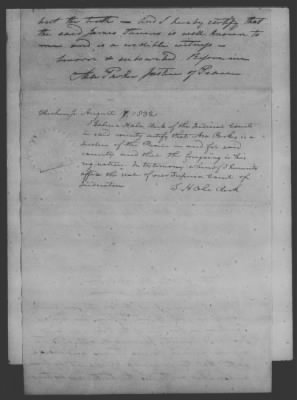 but the truth - And I hereby certify that
the said James Stevens is well known to
me and is a credible witness -
Sworn & subscribed Before me
Asa Parker Justice of Peace
August 1832
I Hale clerk of the Court
in said county certify that Asa Parker is a
Justice of the Peace in and for said
county and that the foregoing is his
signature. In testimony whereof I hereunto
affix the seal of our Supreme Court of
Judicature
S Hale clerk